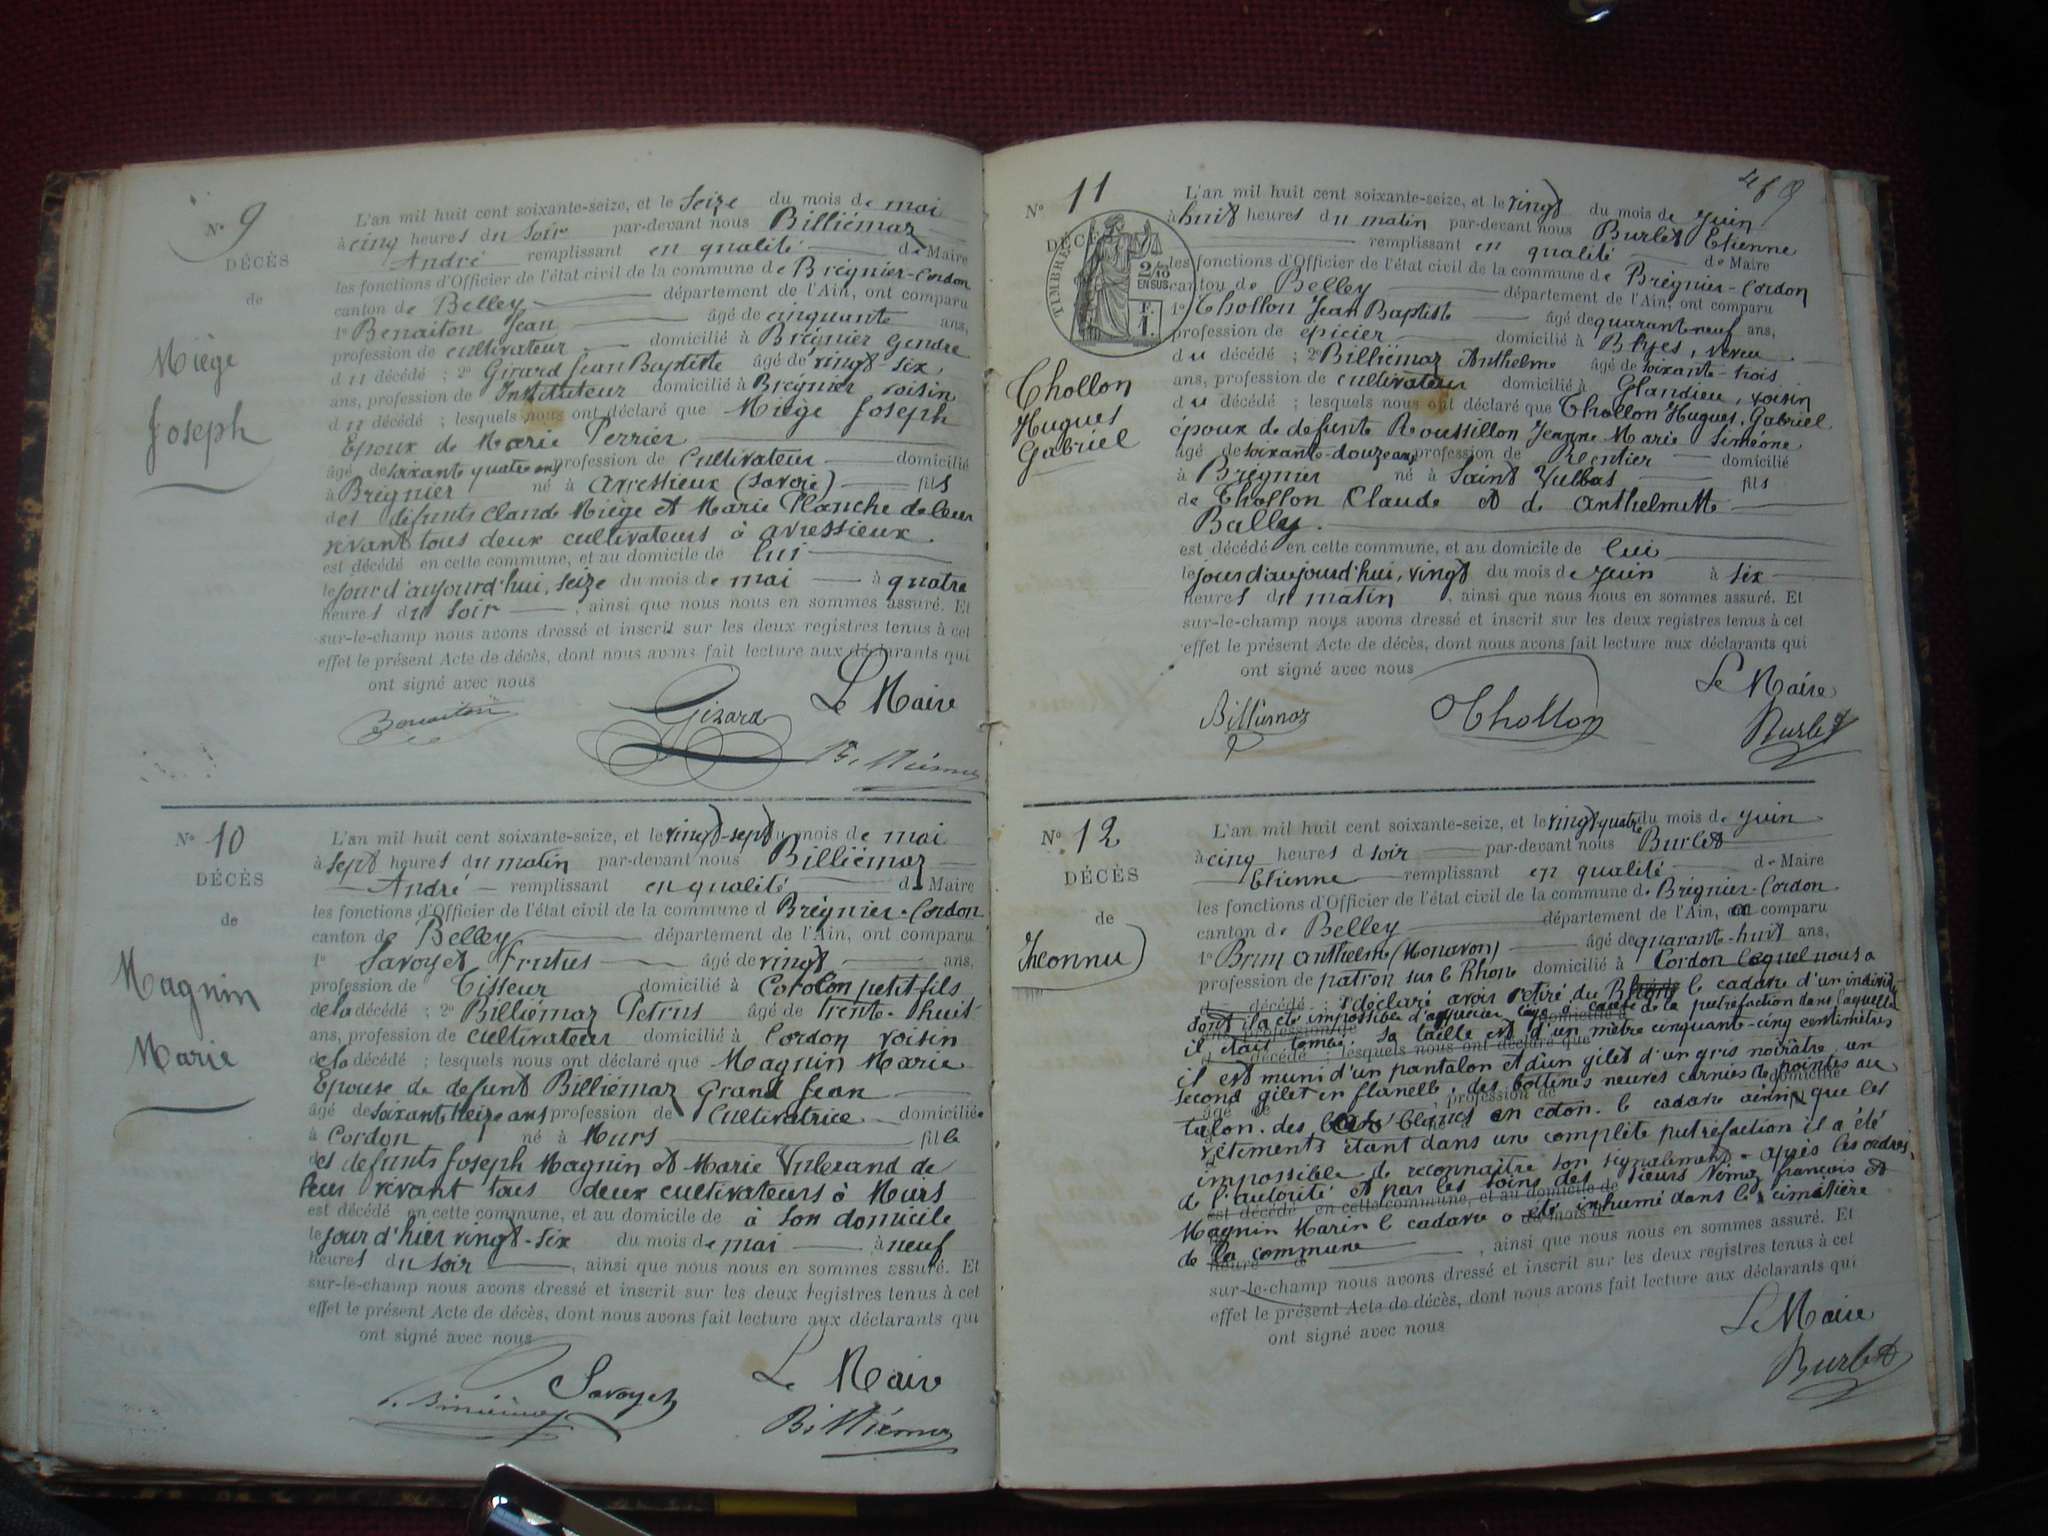 N° 9
DÉCÈS
de
Miège
Joseph
L'an mil huit cent soixante-seize, et le Seize du mois de mai
à cinq heures du soir par-devant nous Billiémaz
André remplissant en qualité de Maire
les fonctions d'Officier de l'état civil de la commune de Brégnier-Cordon
canton de Belley département de l'Ain, ont comparu
1° Benaiton Jean âgé de cinquante ans,
profession de cultivateur domicilié à Brégnier Gendre
du décédé ; 2° Girard Jean Baptiste âgé de vingt-six
ans, profession de Instituteur domicilié à Brégnier voisin
du décédé ; lesquels nous ont déclaré que Miège Joseph
Epoux de Marie Perrier
âgé de soixante quatre ans profession de Cultivateur domicilié
à Brégnier né à Avressieux (Savoie) fils
des défunts Claude Miège et Marie Planche de leur
vivant tous deux cultivateurs à avressieux
est décédé en cette commune, et au domicile de lui
le jour d'aujourd'hui, seize du mois de mai à quatre
heures du soir , ainsi que nous nous en sommes assuré. Et
sur-le-champ nous avons dressé et inscrit sur les deux registres tenus à cet
effet le présent Acte de décès, dont nous avons fait lecture aux déclarants qui
ont signé avec nous
Le Maire
Benaiton Girard Billiémaz
N° 10
DÉCÈS
de
Magnin
Marie
L'an mil huit cent soixante-seize, et le vingt-sept du mois de mai
à sept heures du matin par-devant nous Billiémaz
André remplissant en qualité de Maire
les fonctions d'Officier de l'état civil de la commune d Brégnier-Cordon
canton de Belley département de l'Ain, ont comparu
1° Savoyet Frutus âgé de vingt ans,
profession de Tisseur domicilié à Cordon petit-fils
de la décédé ; 2° Billiémaz Petrus âgé de trente-huit
ans, profession de cultivateur domicilié à Cordon voisin
de la décédé ; lesquels nous ont déclaré que Magnin Marie
Epouse de défunt Billiémaz Grand Jean
âgé de soixant seize ans profession de Cultivatrice domiciliée
à Cordon né à Murs fille
des defunts Joseph Magnin et Marie Vulerand de
leur vivant tous deux cultivateurs à Murs
est décédé en cette commune, et au domicile de à son domicile
le jour d'hier vingt-six du mois de mai à neuf
heures du soir , ainsi que nous nous en sommes assuré. Et
sur-le-champ nous avons dressé et inscrit sur les deux registres tenus à cet
effet le présent Acte de décès, dont nous avons fait lecture aux déclarants qui
ont signé avec nous
Le Maire
Savoyet
Billiémaz
N° 11
DÉCÈS
TIMBRE
2/10
EN SUS
F.
1.
Thollon
Hugues
Gabriel
L'an mil huit cent soixante-seize, et le vingt du mois de Juin
à huit heures du matin par-devant nous Burlet Etienne
remplissant en qualité de Maire
les fonctions d'Officier de l'état civil de la commune de Brégnier-Cordon
canton de Belley département de l'Ain, ont comparu
1° Thollon Jean Baptiste âgé de quarante neuf ans,
profession de épicier domicilié à Blyes, neveu
du décédé ; 2° Billiémaz Anthelme âgé de soixante-trois
ans, profession de cultivateur domicilié à Glandieu, voisin
du décédé ; lesquels nous ont déclaré que Thollon Hugues, Gabriel
époux de defunte Roussillon Jeanne Marie Siméone
âgé de soixante-douze ans profession de Rentier domicilié
à Brégnier né à Saint Vulbas fils
de Thollon Claude et de Anthelmette
Bally.
est décédé en cette commune, et au domicile de lui
le jour d'aujourd'hui, vingt du mois de juin à six
heures du matin , ainsi que nous nous en sommes assuré. Et
sur-le-champ nous avons dressé et inscrit sur les deux registres tenus à cet
effet le présent Acte de décès, dont nous avons fait lecture aux déclarants qui
ont signé avec nous
Le Maire
Billiémaz Thollon Burlet
N° 12
DÉCÈS
de
Inconnu
L'an mil huit cent soixante-seize, et le vingt-quatre du mois de Juin
à cinq heures d soir par-devant nous Burlet
Etienne remplissant en qualité de Maire
les fonctions d'Officier de l'état civil de la commune d Brégnier-Cordon
canton de Belley département de l'Ain, a comparu
1° Brun Anthelme (Monavon) âgé de quarant-huit ans,
profession de patron sur le Rhône domicilié à Cordon lequel nous a
d décédé ; déclaré avoir retiré du Rhône le cadavre d'un individu
dont il a été impossible d'apprécier l'âge à cause de la putréfaction dans laquelle
il était tombé. Sa taille est d'un mètre cinquante-cinq centimètres
décédé ; lesquels nous ont déclaré que
il est muni d'un pantalon et d'un gilet d'un gris noirâtre un
second gilet en flanelle, des bottines neuves garnies de pointes au
talon. des bas blancs en coton. le cadavre ainsi que les
vêtements étant dans une complète putréfaction il a été
impossible de reconnaitre son signalement. après les ordres
de l'autorité et par les soins des sieurs francois et
est décédé en cette commune, et au domicile de
Magnin Marin le cadavre a été inhumé dans le cimetière
de la commune , ainsi que nous nous en sommes assuré. Et
sur-le-champ nous avons dressé et inscrit sur les deux registres tenus à cet
effet le présent Acte de décès, dont nous avons fait lecture aux déclarants qui
ont signé avec nous
Le Maire
Burlet